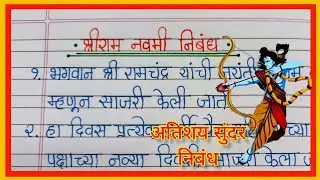 श्रीराम नवमी निबंध
१. भगवान श्री रामचंद्र यांची जयंती
म्हणून साजरी केली जाते
२. हा दिवस प्रत्येक
पक्षाच्या नव्या दि केला ज
अतिशय सुंदर
निबंध